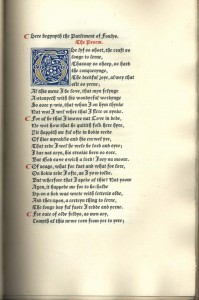 Here begynyth the Parlement of Foulys.
The Proem.
The lyf so short, the craft so
longe to lerne,
Thassay so sharp, so hard
the conquerynge,
The dredful joye, alwey that
slit so yerne;
Al this mene I be love, that myn felynge
Astonyeth with his wonderful werkynge
So sore y-wis, that when I on hym thynke
Nat wot I wel wher that I flete or synke.
For al be that I knowe nat Love in dede,
Ne wot how that he quitith folk here hyre,
Yit happeth me ful ofte in bokis reede
Of hise myraklis and his crewel yre,
That rede I wel he wele be lord and syre;
I dar nat seyn, his strokis been so sore,
But God save swich a lord! I sey na moore.
Of usage, what for lust and what for lore,
On bokis rede I ofte, as I yow tolde.
But wherfore that I speke of this? Nat yoore
Agon, it happede me for to beholde
Up on a bok was wrete with letteris olde,
And ther upon, a certeyn thing to lerne,
The longe day ful faste I redde and yerne.
For oute of olde feldys, as men sey,
Comyth al this newe corn from yer to yere;